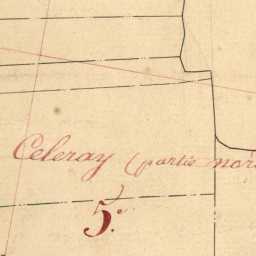 Celeray (partie nor
5.